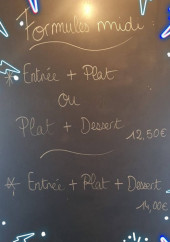 Formules midi :
* Entrée + Plat
ou
Plat + Dessert
12,50€
* Entrée + Plat + Dessert
14,00€